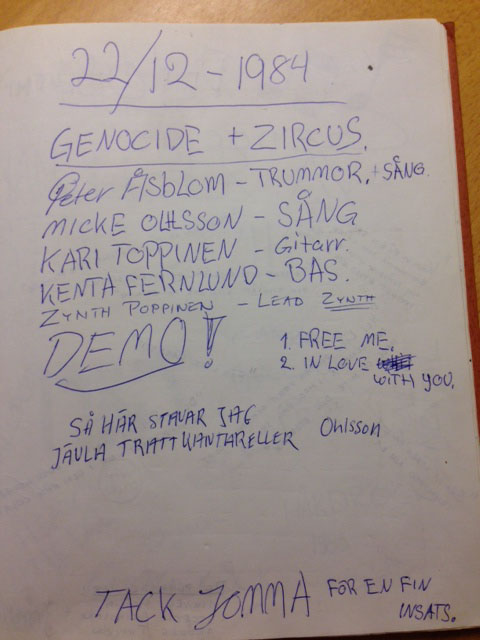 22/12 - 1984
GENOCIDE + ZIRCUS.
Peter Åsblom - TRUMMOR, + SÅNG.
MICKE OHLSSON - SÅNG
KARI TOPPINEN - Gitarr.
KENTA FERNLUND - BAS.
ZYNTH POPPINEN - LEAD ZYNTH
DEMO!
1. FREE ME.
2. IN LOVE
WITH YOU.
SÅ HÄR STAVAR JAG
JÄVLA TRATTKANTARELLER Ohlsson
TACK JOMMA FÖR EN FIN
INSATS.